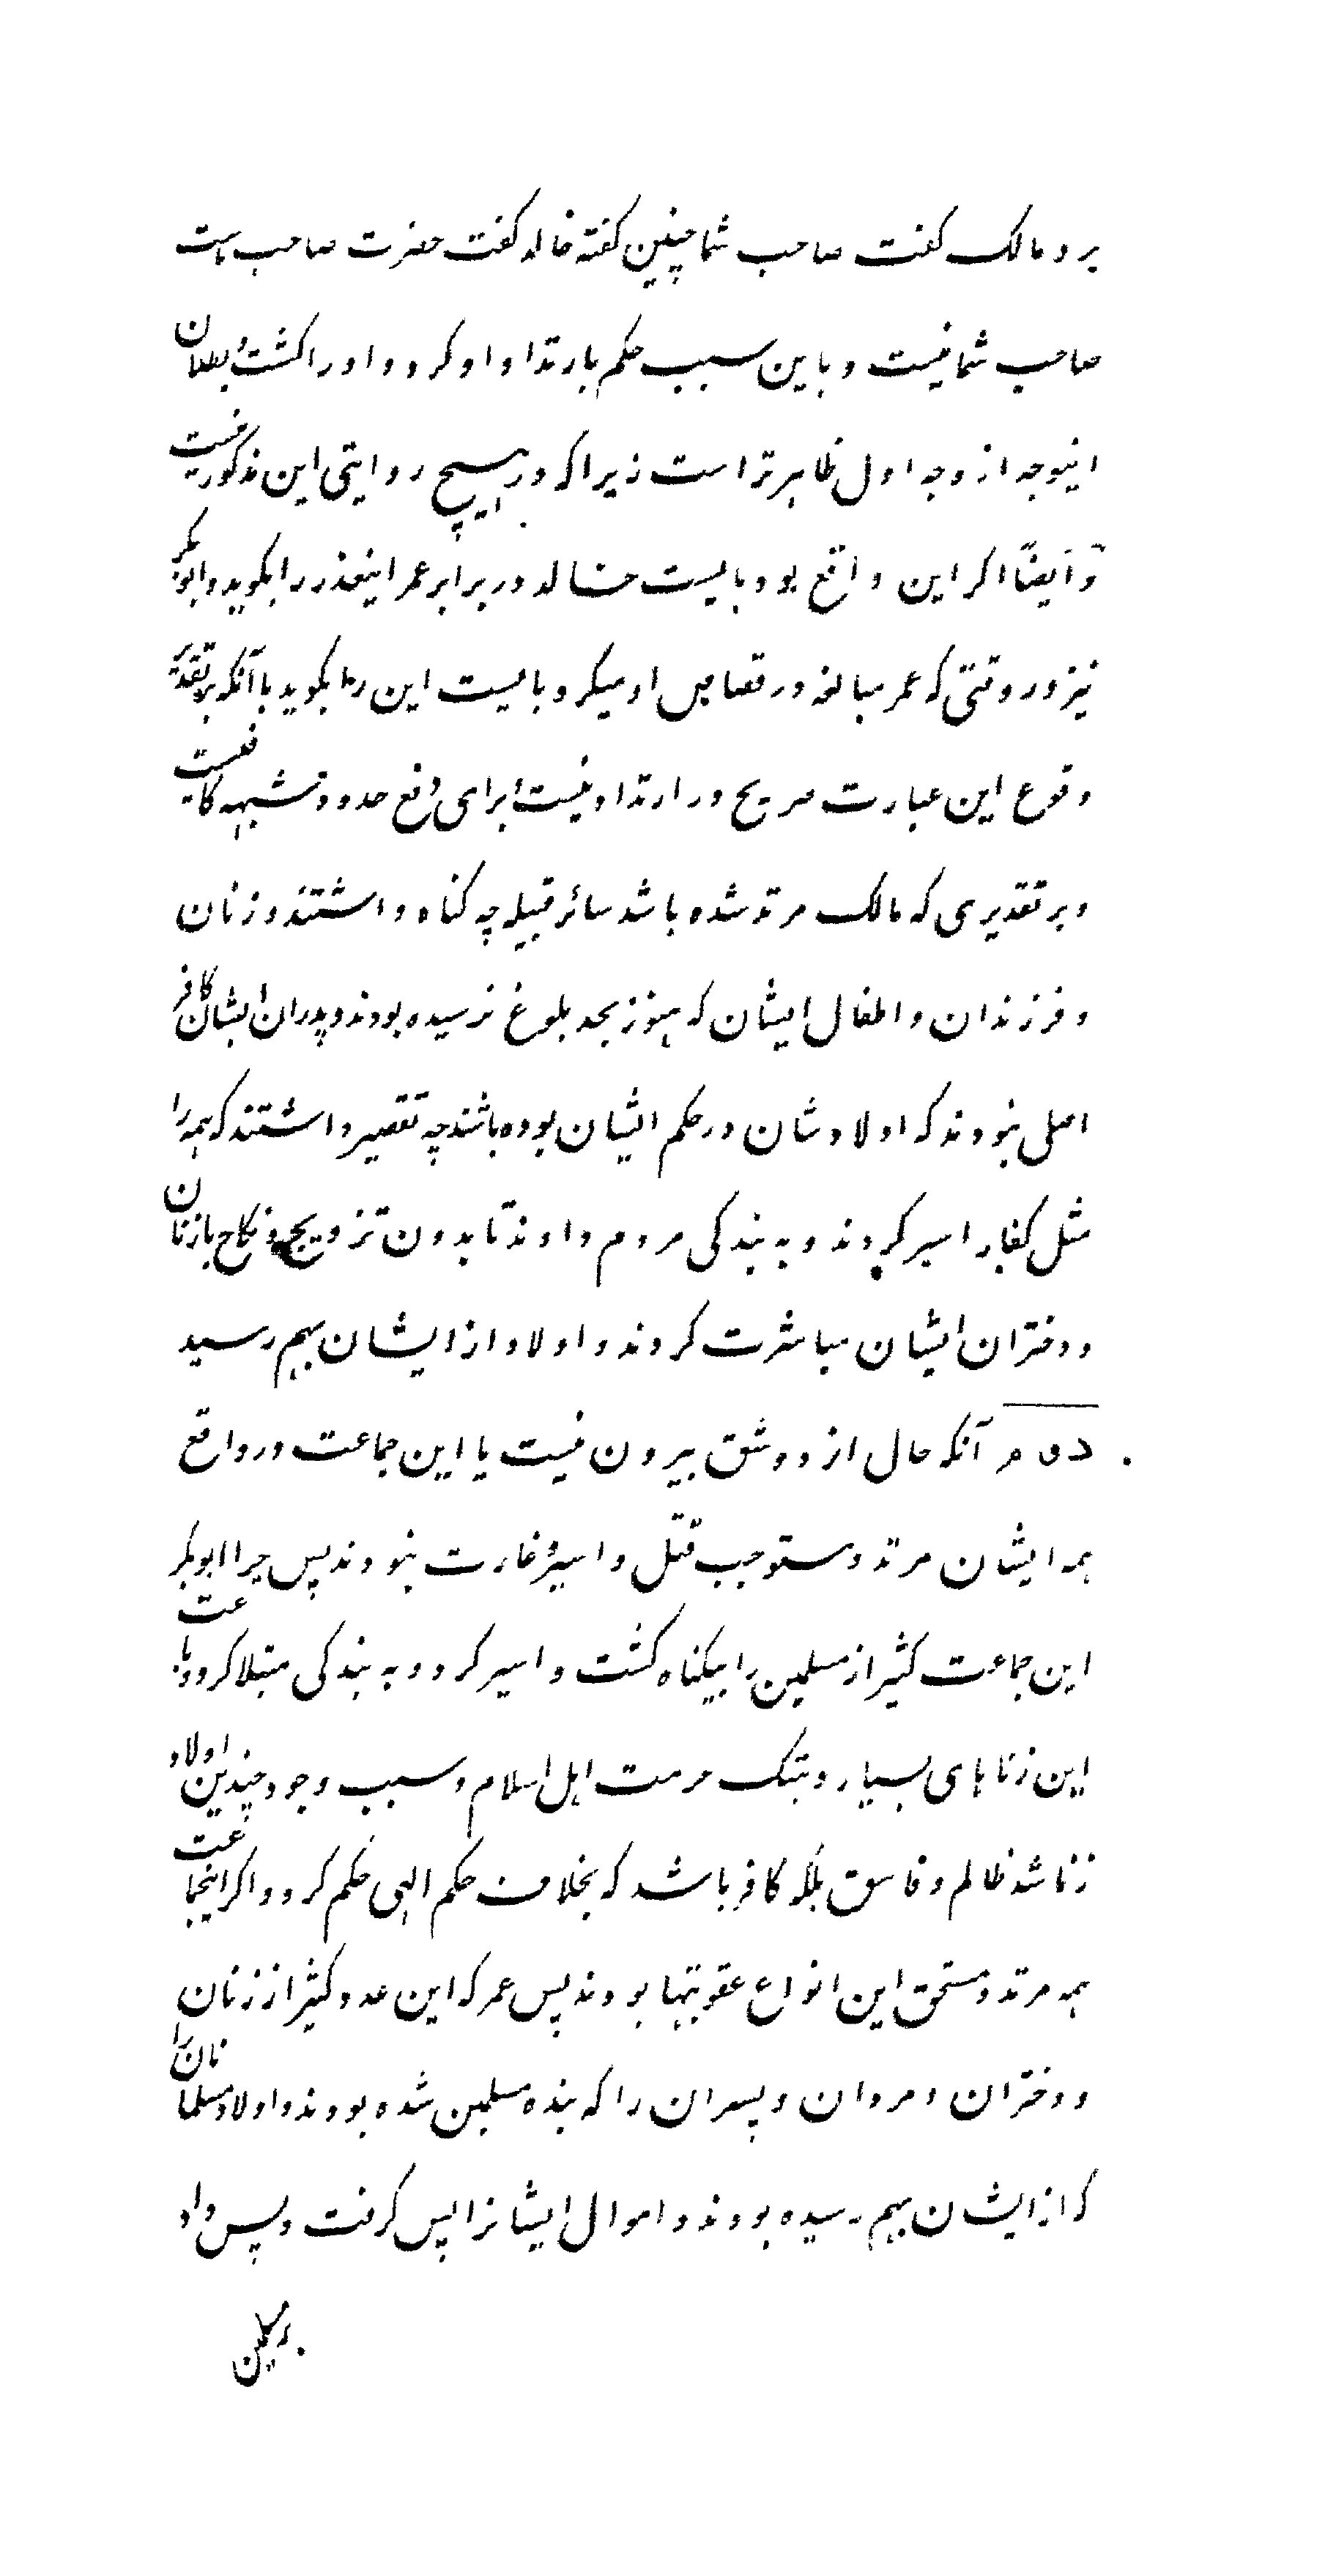 برد مالک گفت صاحب شما چنین گفته خالد گفت حضرت صاحب ماست
صاحب شما نیست و باین سبب حکم بارتداد او کرد و او را کشت و بطلان
اینوجه از وجه اول ظاهر تر است زیرا که در هیچ روایتی این مذکور نیست
و ایضا اگر این واقع بود بایست خالد در برابر عمر اینعذر را بگوید و ابوبکر
نیز در وقتی که عمر مبالغه در قصاص او میکرد بایست این را بگوید با آنکه بر تقدیر
وقوع این عبارت صریح در ارتداد نیست برای دفع حدود شبهه کافیست
و بر تقدیری که مالک مرتد شده باشد سائر قبیله چه گناه داشتند و زنان
و فرزندان و اطفال ایشان که هنوز بحد بلوغ نرسیده بودند و پدران ایشان کافر
اصلی نبودند که اولادشان در حکم ایشان بوده باشند چه تقصیر داشتند که همه را
مثل کفار اسیر کردند و به بندگی مردم دادند تا بدون تزویج و نکاح بازنان
و دختران ایشان مباشرت کردند و اولاد از ایشان بهم رسید
دوم آنکه حال از دو شق بیرون نیست یا این جماعت در واقع
همه ایشان مرتد و مستوجب قتل و اسیر و غارت نبودند پس چرا ابوبکر
این جماعت کثیر از مسلمین را بیگناه کشت و اسیر کرد و به بندگی مبتلا کرد و باعث
این زناهای بسیار و هتک حرمت اهل اسلام و سبب وجود چندین اولاد
زنا شد ظالم و فاسق بلکه کافر باشد که بخلاف حکم الهی حکم کرد و اگر اینجماعت
همه مرتد و مستحق این انواع عقوبتها بودند پس عمر که این عدد کثیر از زنان
و دختران و مردان و پسران را که بنده مسلمین شده بودند و اولاد مسلمانان را
که از ایشان بهم رسیده بودند و اموال ایشانرا پس گرفت و پس داد